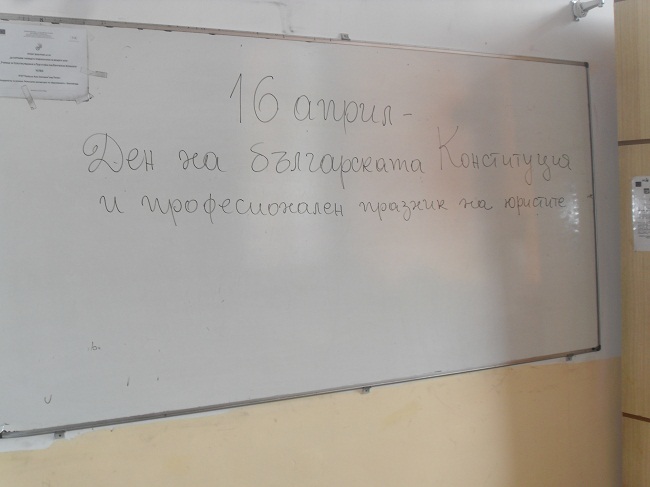 16 април -
Ден на българската Конституция
и професионален празник на юристите